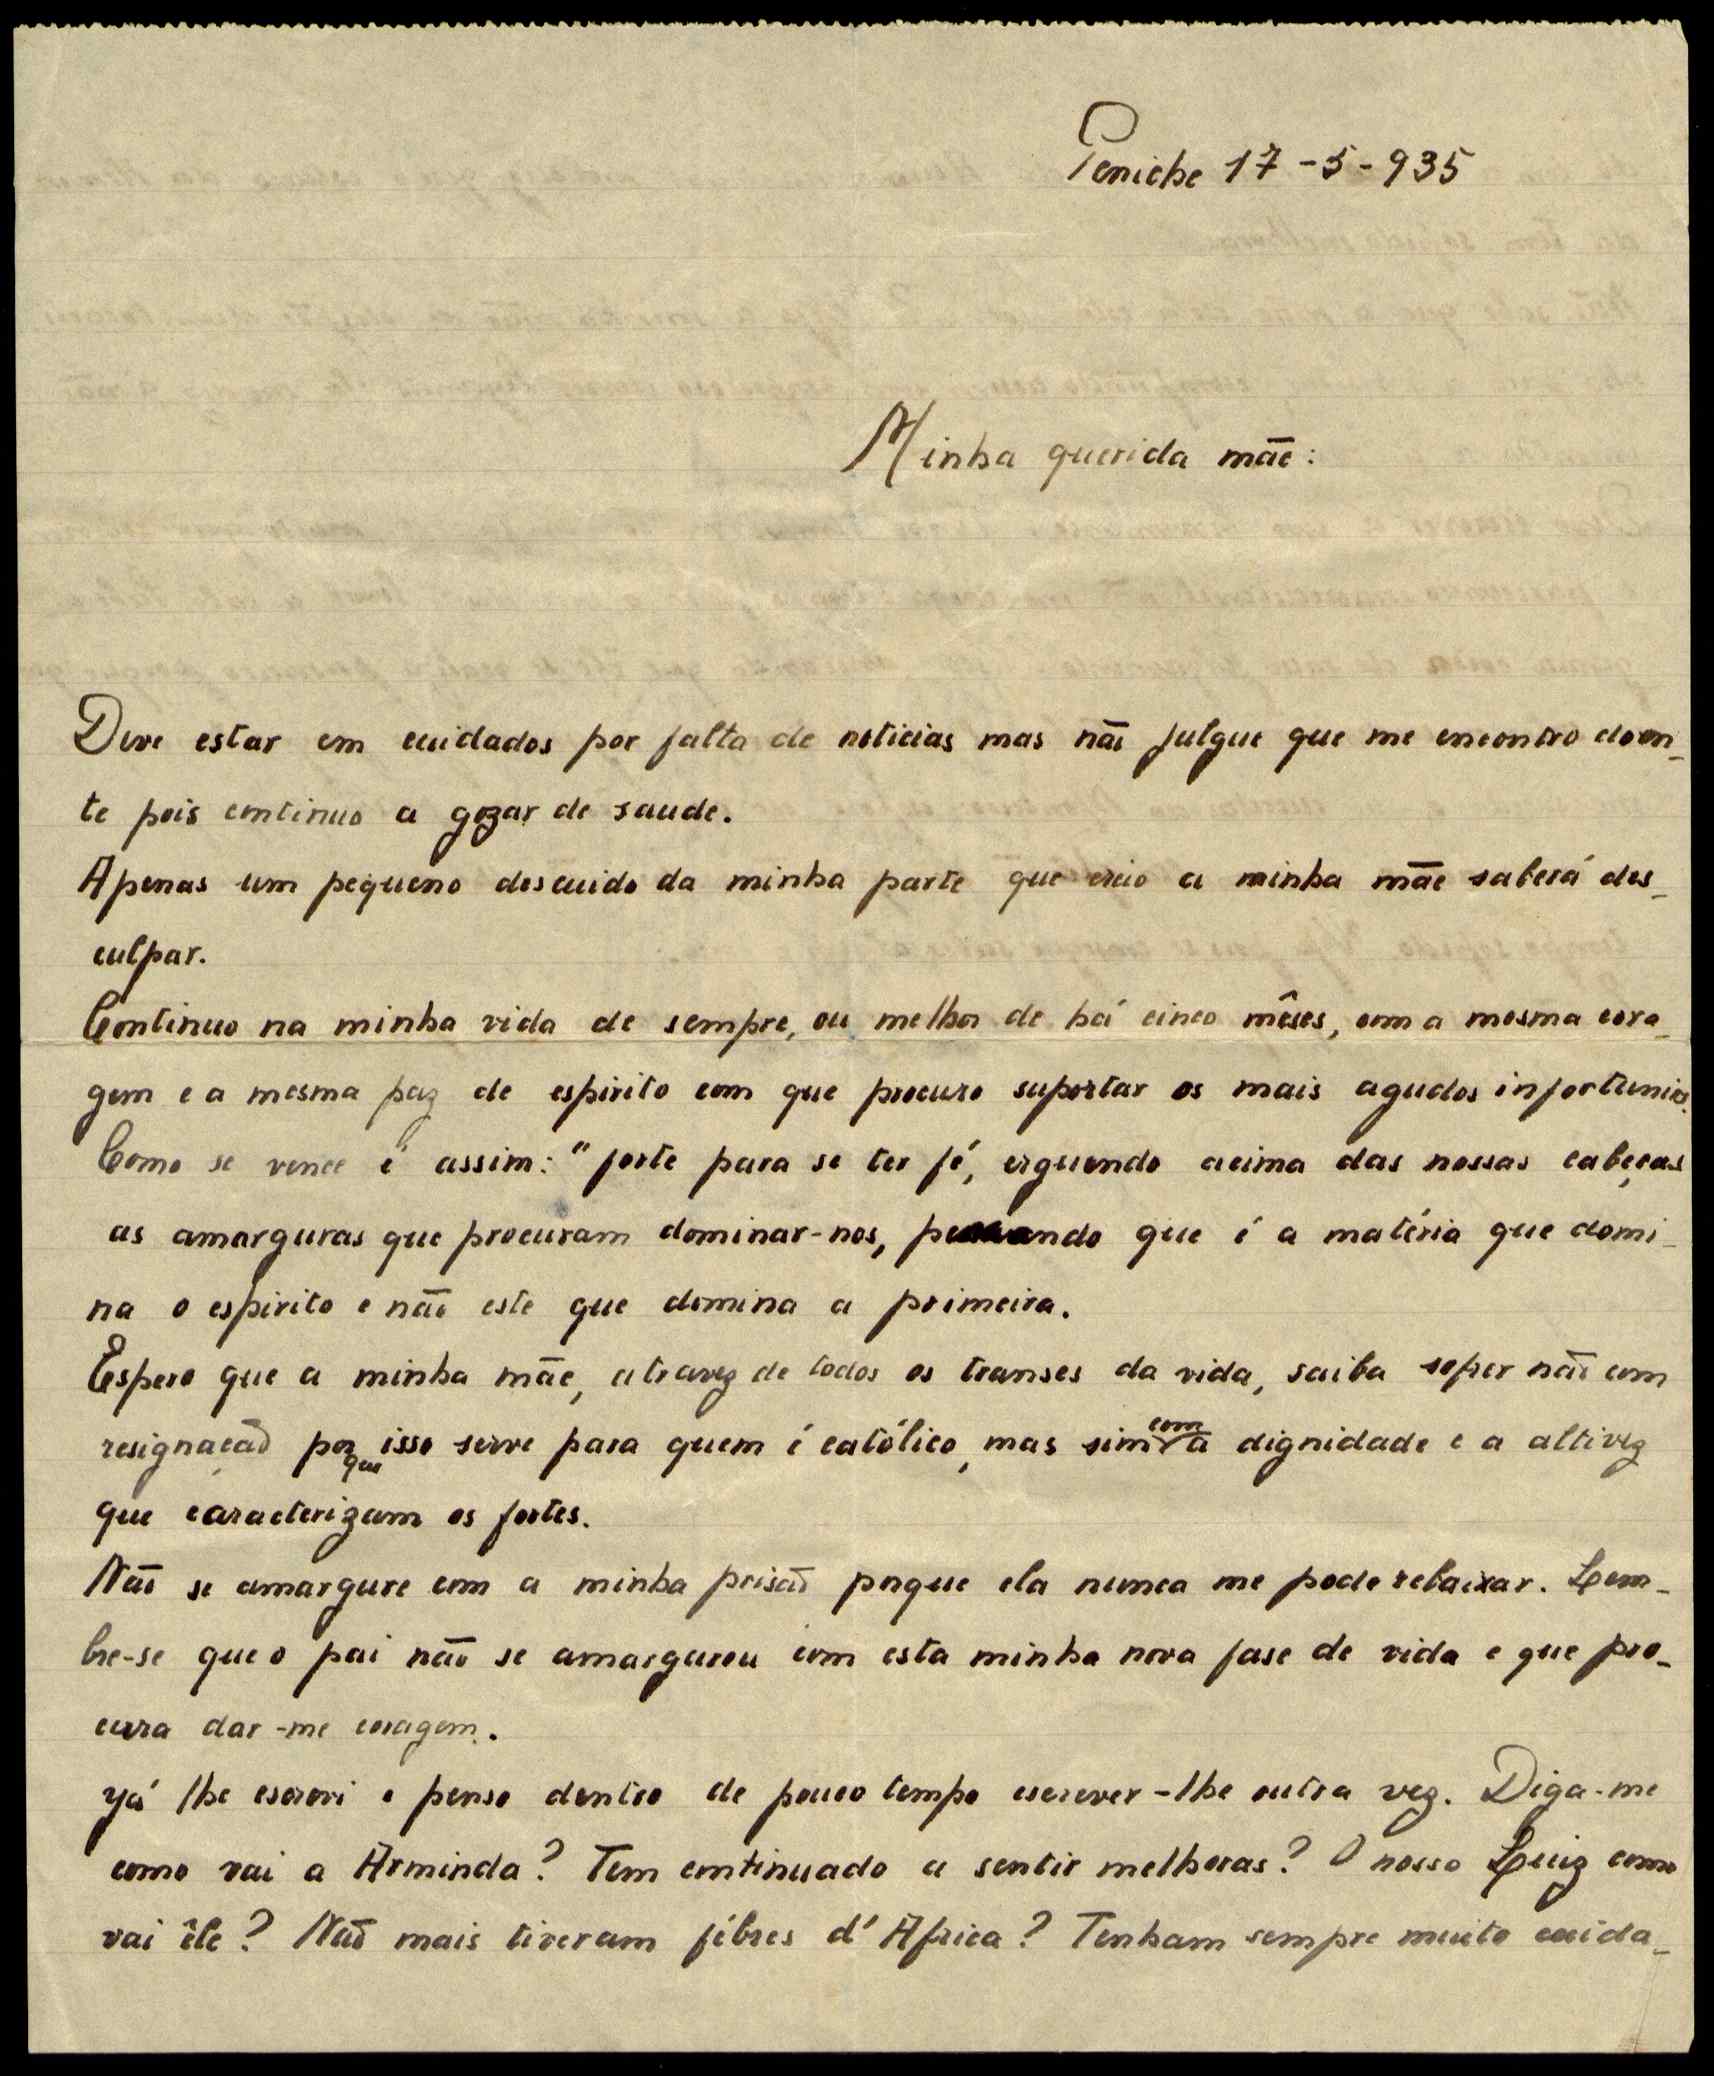 Peniche 17-5-935
Minha querida mãe:
Deve estar em cuidados por falta de noticias mas não julgue que me encontro doen-
te pois continuo a gozar de saude.
Apenas um pequeno descuido da minha parte que creio a minha mãe saberá des-
culpar.
Continuo na minha vida de sempre, ou melhor de há cinco mêses, com a mesma cora-
gem e a mesma paz de espirito com que procuro suportar os mais agudos infortunios.
Como se vence é assim: "forte para se ter fé, erguendo acima das nossas cabeças
as amarguras que procuram dominar-nos, pensando que é a matéria que domi-
na o espirito e não este que domina a primeira.
Espero que a minha mãe, atravez de todos os transes da vida, saiba sofrer não com
resignação porque isso serve para quem é católico, mas sim com a dignidade e a altivez
que caracterizam os fortes.
Não se amargure com a minha prisão porque ela nunca me pode rebaixar. Lem-
bre-se que o pai não se amargurou com esta minha nova fase de vida e que pro-
cura dar-me coragem.
Já lhe escrevi e penso dentro de pouco tempo escrever-lhe outra vez. Diga-me
como vai a Arminda? Tem continuado a sentir melhoras? O nosso Luiz como
vai êle? Não mais tiveram fébres d'Africa? Tenham sempre muito cuida-